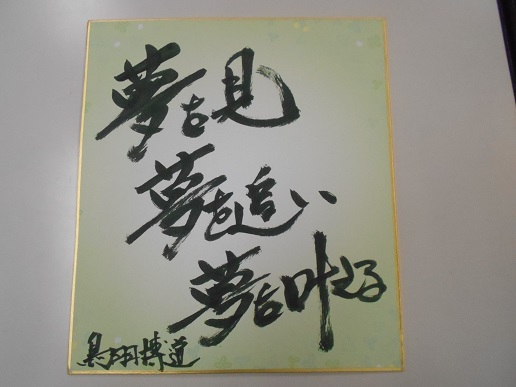 夢を見
夢を追い
夢を叶える
鳥羽博道